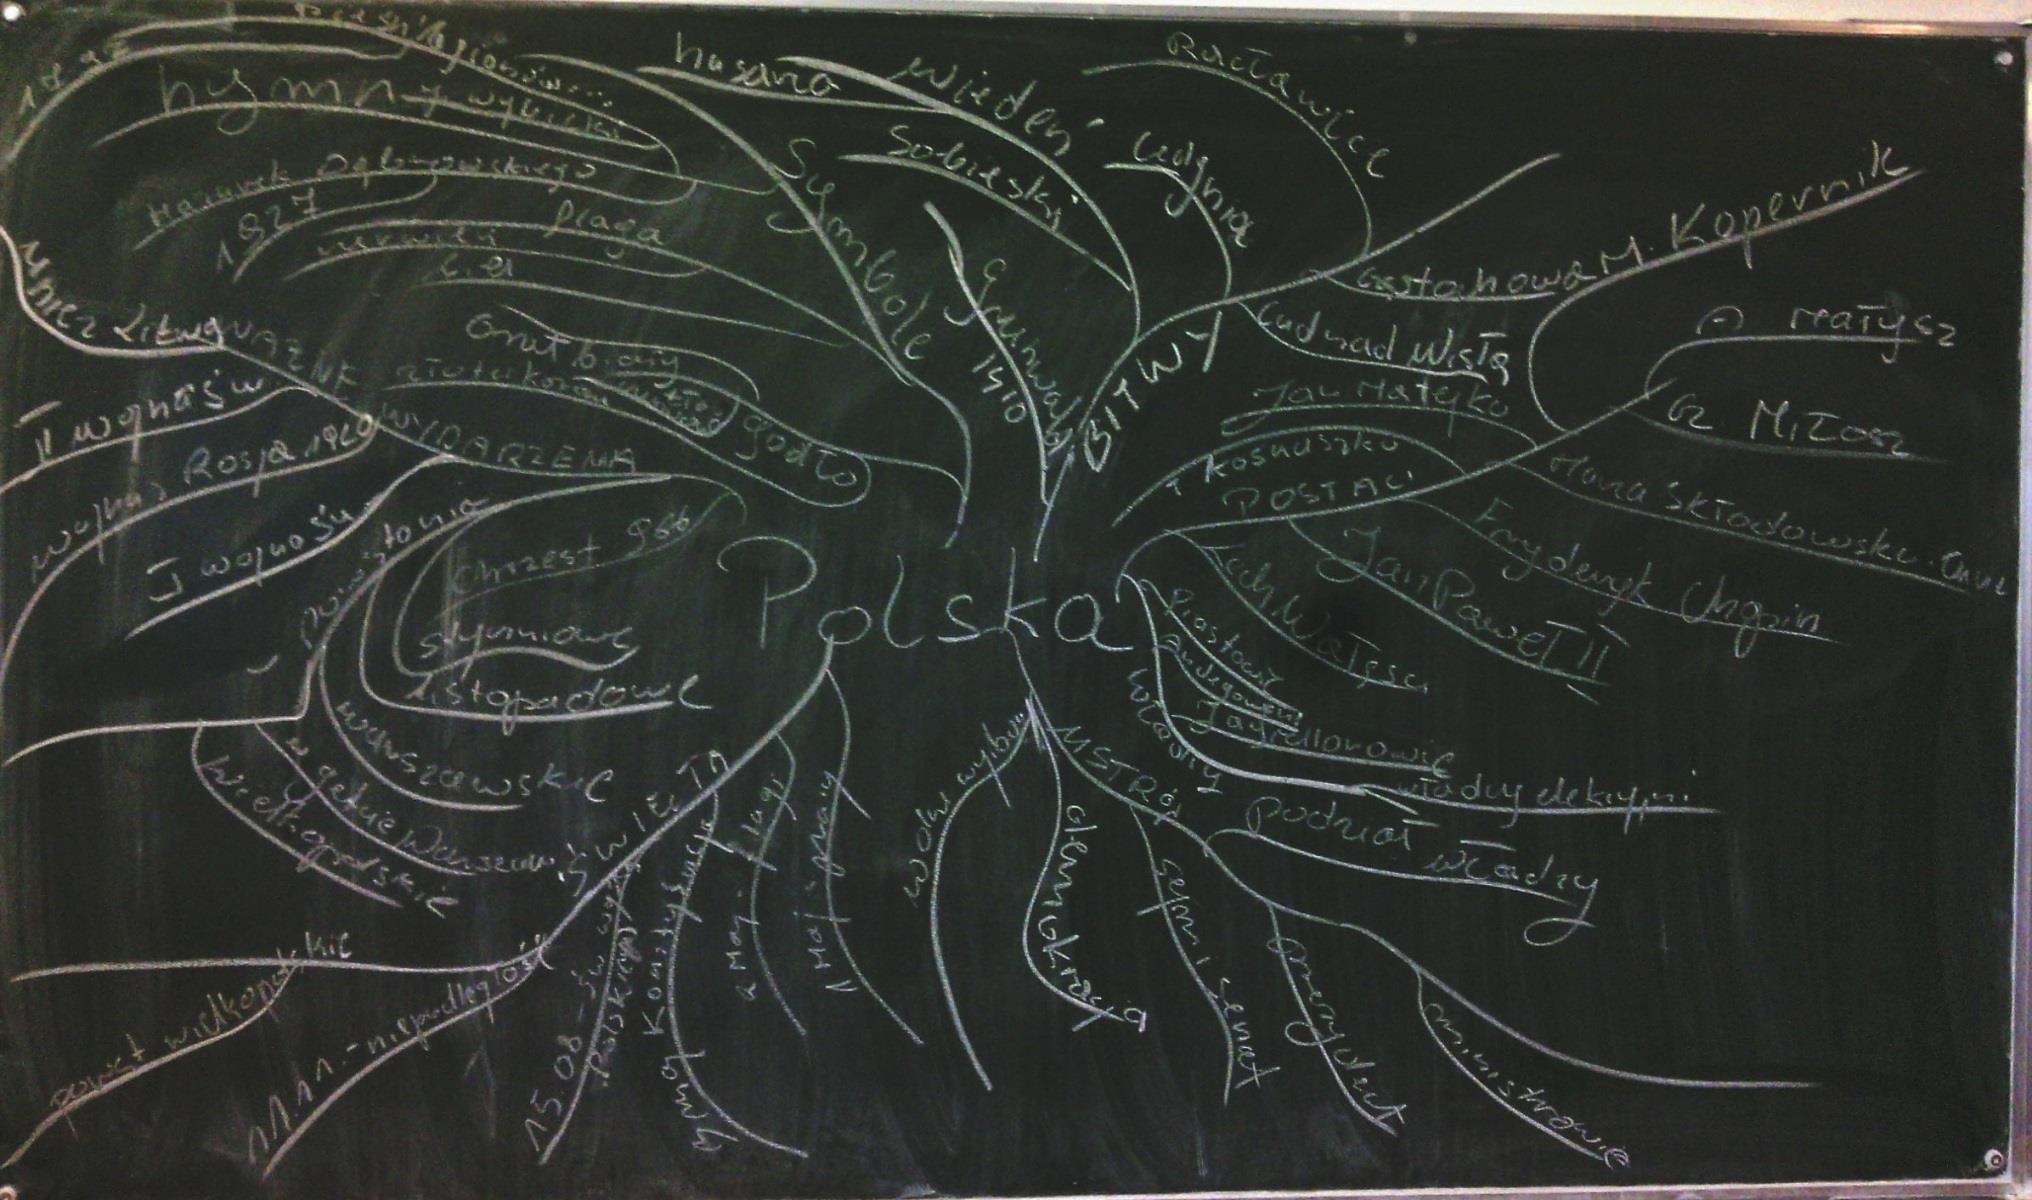 Polska
Symbole
hymn
J. Wybicki
Mazurek Dąbrowskiego
1927
flaga
godło
złota korona
BITWY
husaria
Wiedeń
Sobieski
Racławice
Cedynia
Grunwald
1410
Częstochowa
Cud nad Wisłą
POSTACI
M. Kopernik
A Małysz
Cz Miłosz
Jan Matejko
T Kościuszko
Maria Skłodowska-Curie
Fryderyk Chopin
Jan Paweł II
Lech Wałęsa
władcy
Piastowie
Andegaweni
Jagiellonowie
władcy elekcyjni
USTRÓJ
podział władzy
wolne wybory
demokracja
sejm i senat
prezydent
ministrowie
ŚWIĘTA
1 Maj - pracy
2 Maj - flagi
3 maj Konstytucja
15.08 - św wojska
Polskiego
11.11. - niepodległość
powst wielkopolskie
WAŻNE
WYDARZENIA
Unia z Litwą
II wojna św
wojna z Rosją 1920
I wojna św
chrzest 966
powstania
styczniowe
listopadowe
warszawskie
w getcie Warszaw.
wielkopolskie